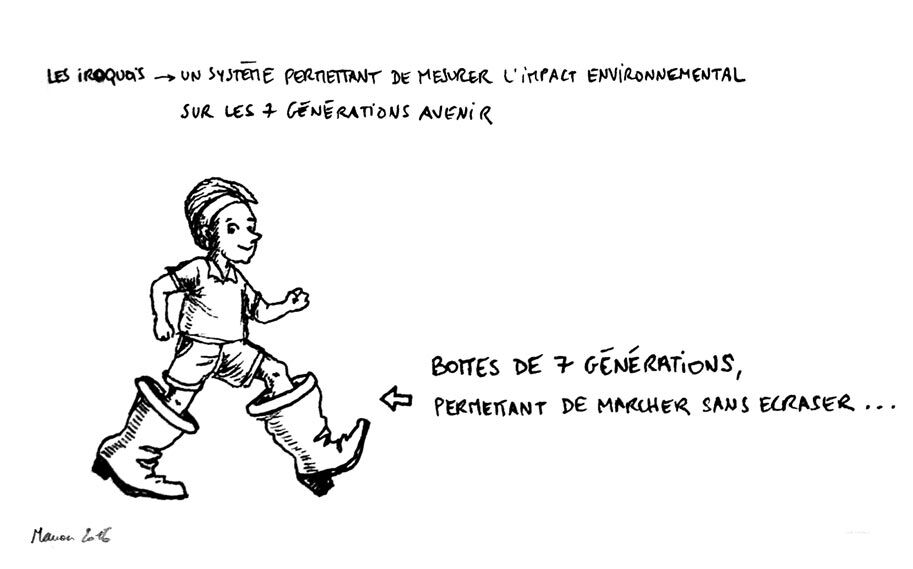 LES IROQUOIS → UN SYSTÈME PERMETTANT DE MESURER L'IMPACT ENVIRONNEMENTAL
SUR LES 7 GÉNÉRATIONS AVENIR
BOTTES DE 7 GÉNÉRATIONS,
PERMETTANT DE MARCHER SANS ECRASER...
Manon 2016